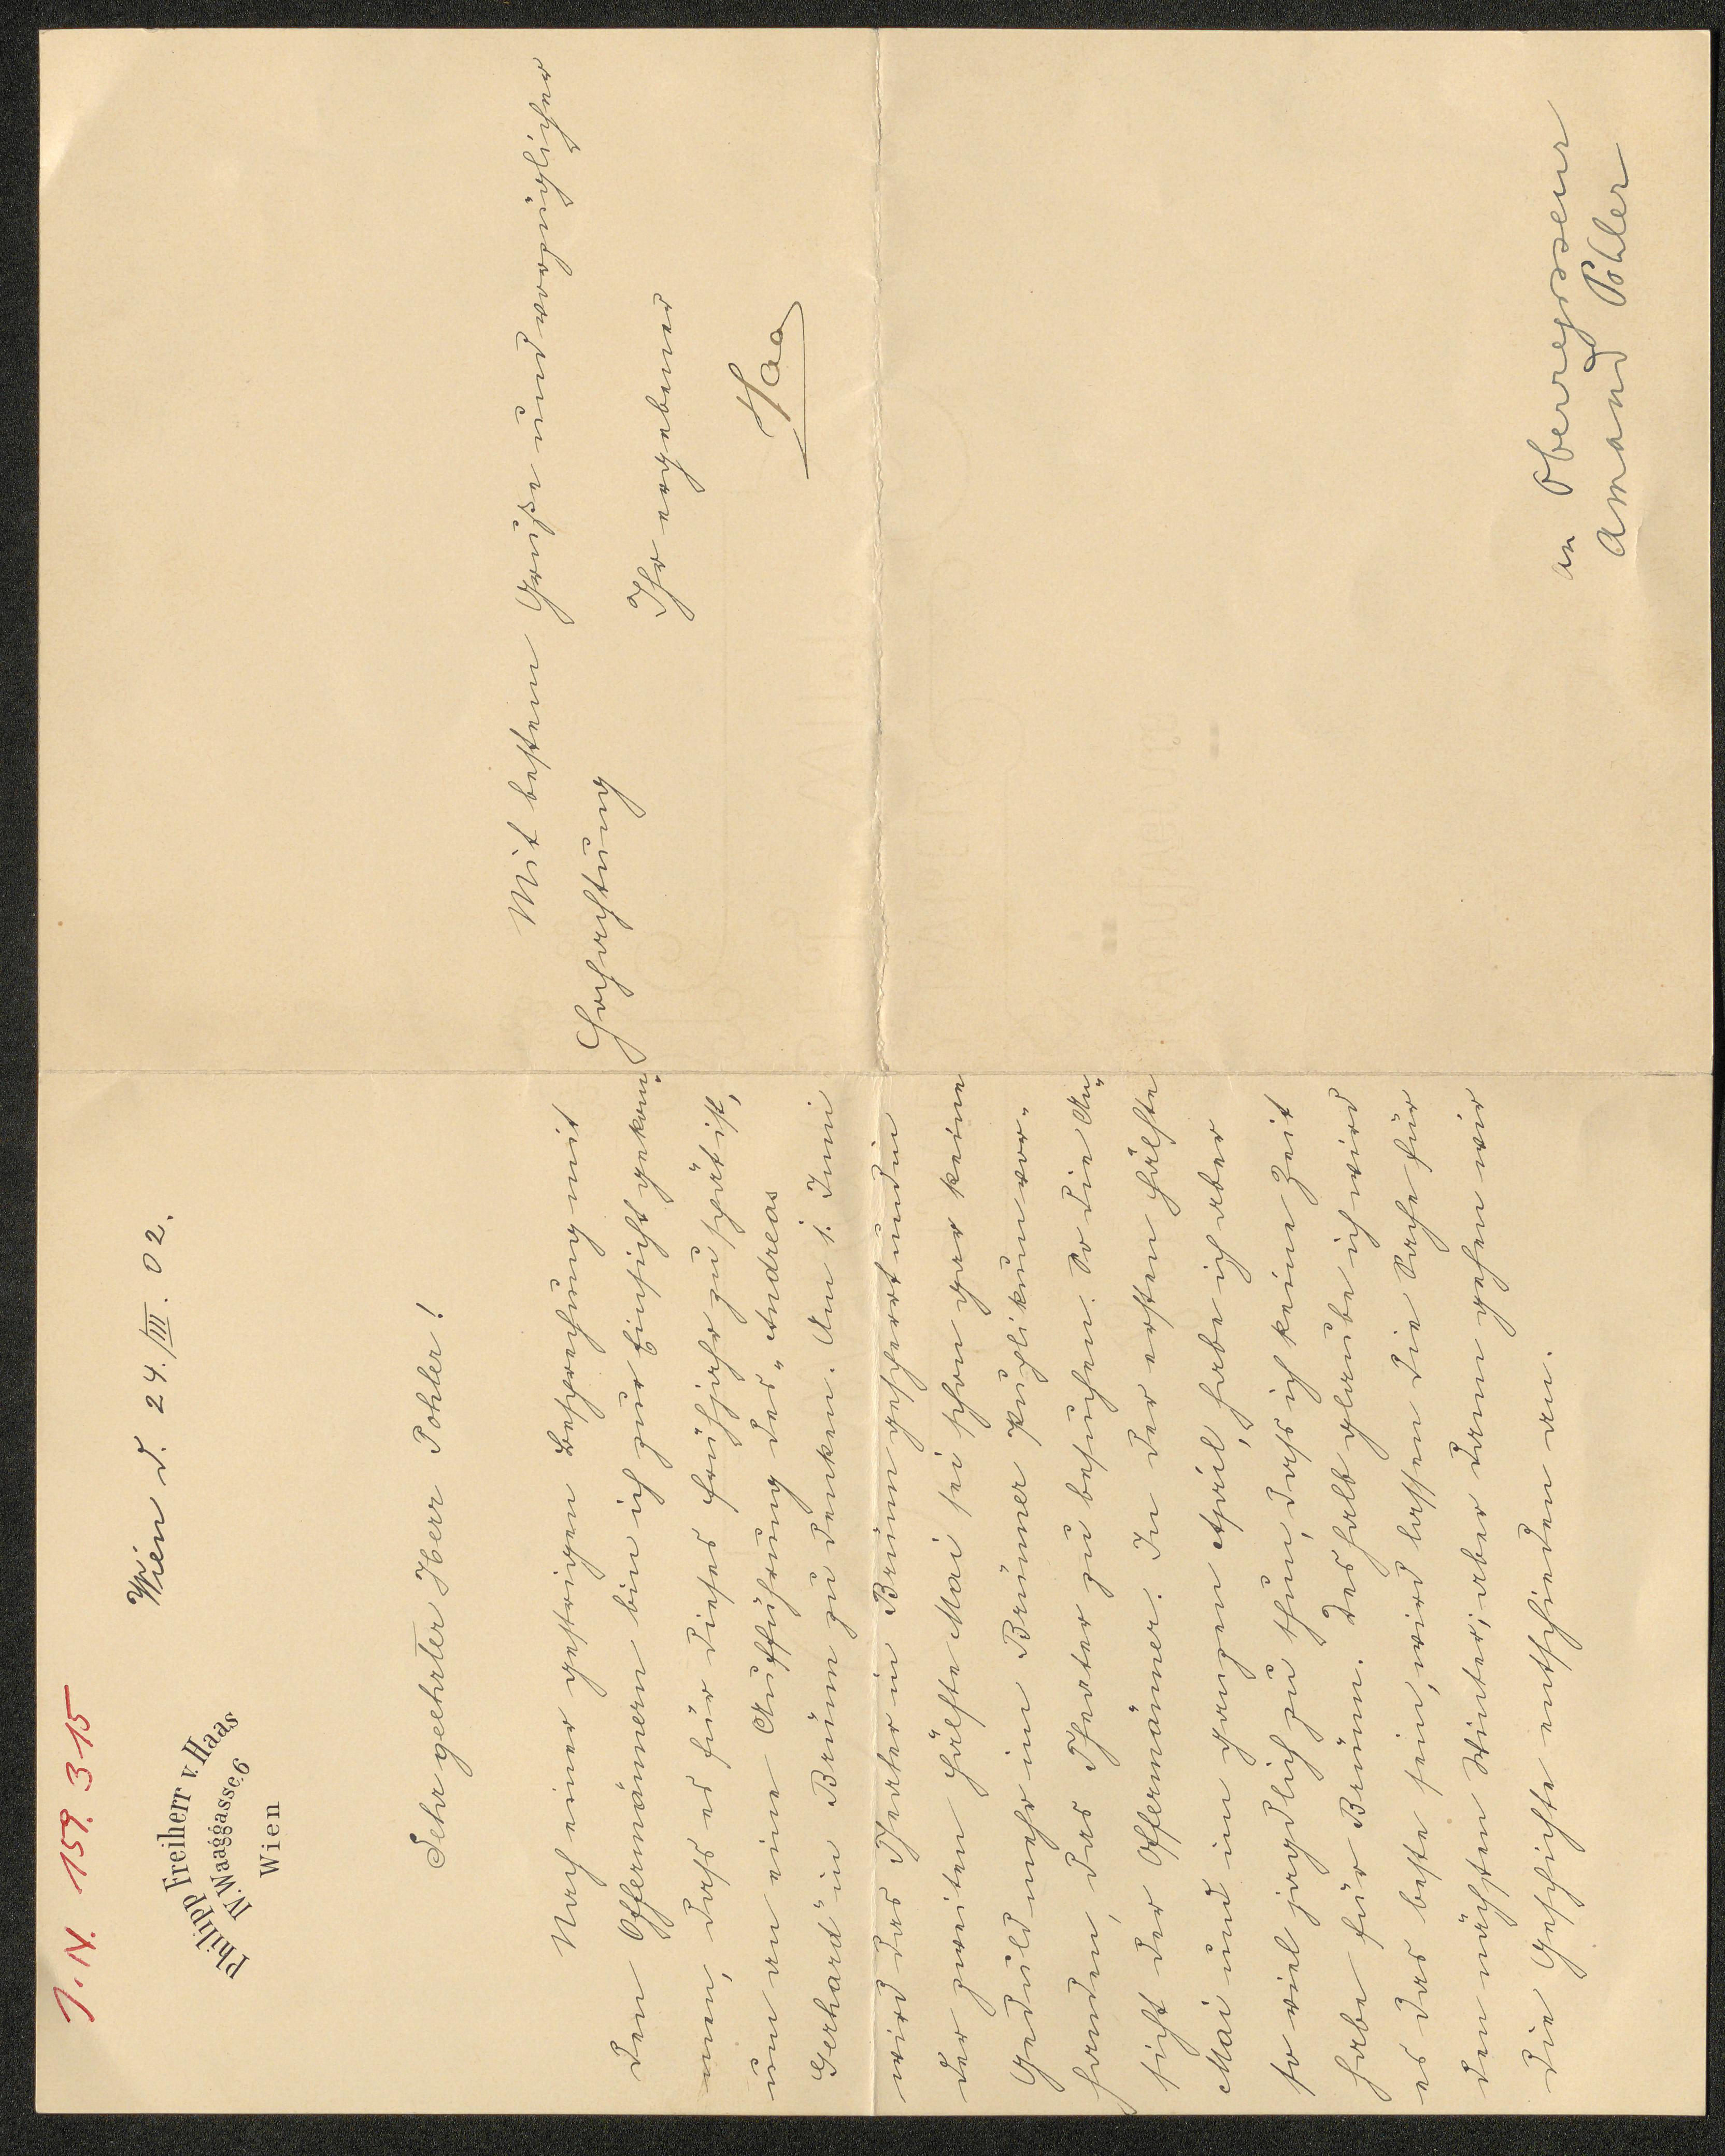 J. N. 159.315
Philipp Freiherr v. Haas
IV. Waaggasse 6
Wien
Wien d. 24./III. 02.
Sehr geehrter Herr Pohler!
Nach einer gestrigen Besprechung mit
den Offermännern bin ich zur Einsicht gekom-
men, dass es für dieses Frühjahr zu spät ist,
um an eine Aufführung des "Andreas
Gerhard" in Brünn zu denken. Am 1. Juni
wird das Theater in Brünn gesperrt und in
der zweiten Hälfte Mai sei schon gar keine
Geduld mehr im Brünner Publikum vor-
handen, das Theater zu besuchen. So die An-
sicht der Offermänner. In der ersten Hälfte
Mai und im ganzen April, habe ich aber
so viel jagdlich zu thun, dass ich keine Zeit
habe für Brünn. Deshalb glaube ich wird
es das beste sein, wird lassen die Sache für
den nächsten Winter; aber dann gehen wir
die Geschichte entschieden an.
Mit bestem Gruße und vorzüglicher
Hochachtung
Ihr ergebener
Haas
an Oberregisseur
Amand Pohler